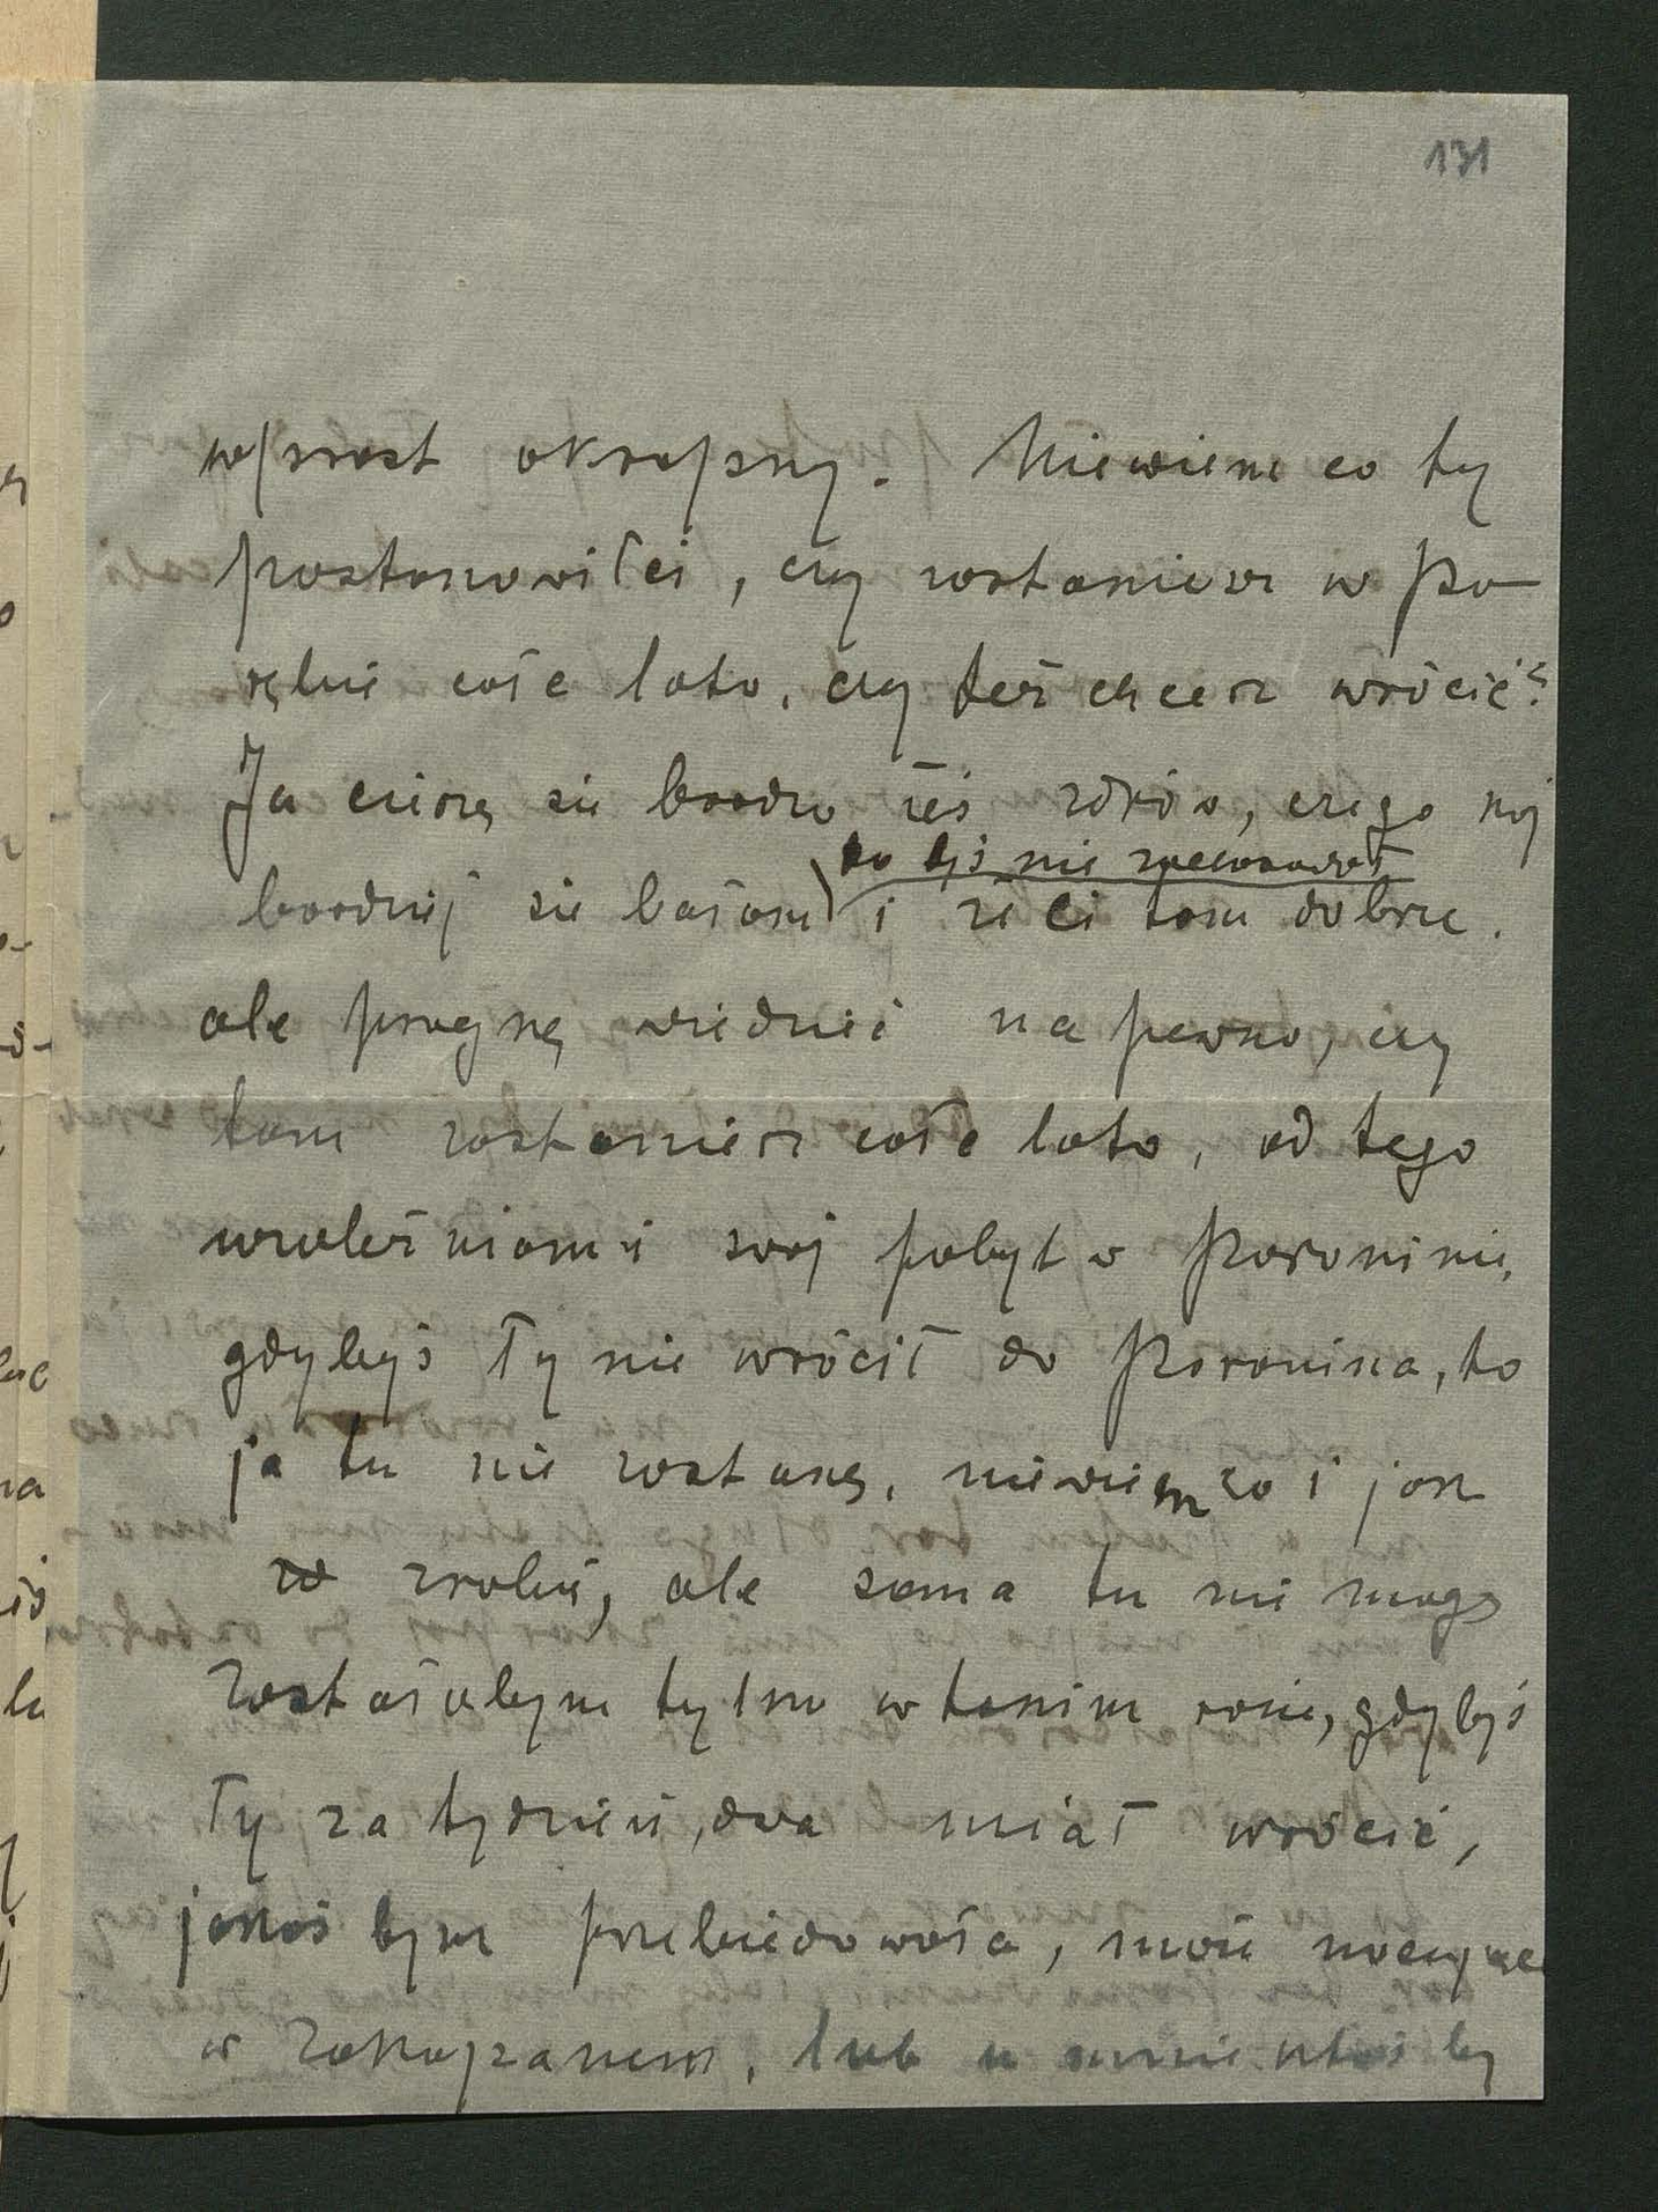 131
wprost okropny. Niewiem co ty
postanowiłeś, czy zostaniesz w Po-
rębie całe lato, czy też chcesz wrócić?
Ja cieszę się bardzo żeś zdrów, czego naj
bardziej się bałam i że Ci tam dobrze.
bo byś nie zachorował
ale pragnę wiedzieć na pewno, czy
tam zostaniesz całe lato, od tego
uzależniam i swój pobyt w Poroninie,
gdybyś Ty nie wrócił do Poronina, to
ja tu nie zostanę, niewiem co i jak
zrobię, ale sama tu nie mogę
Zostałabym tylko w takim razie, gdybyś
Ty za tydzień, dwa miał wrócić,
jakoś bym przebiedowała, może nocując
w Zakopanem, lub u mnie ktoś by